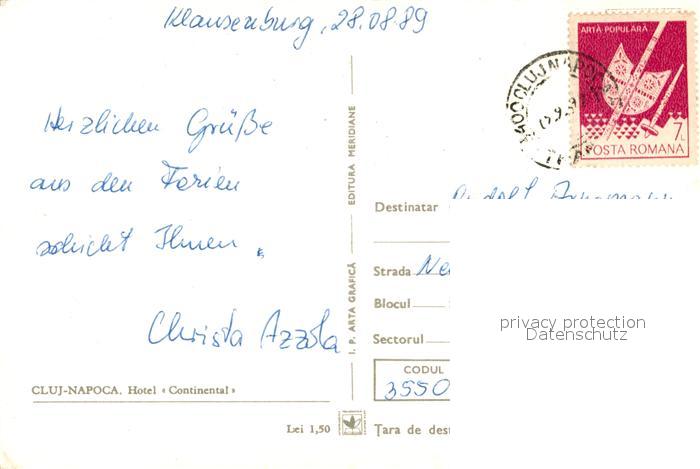 Klausenburg, 28.08.89
ARTĂ POPULARĂ
7L
POSTA ROMANA
3400 CLUJ NAPOCA
Herzlichen Grüße
aus den Ferien
schickt Ihnen
Christa Azzola
CLUJ-NAPOCA. Hotel «Continental»
Lei 1,50
I. P. ARTA GRAFICĂ
EDITURA MERIDIANE
Destinatar
Strada Ne
Blocul
Sectorul
CODUL
3550
Țara de dest
privacy protection
Datenschutz